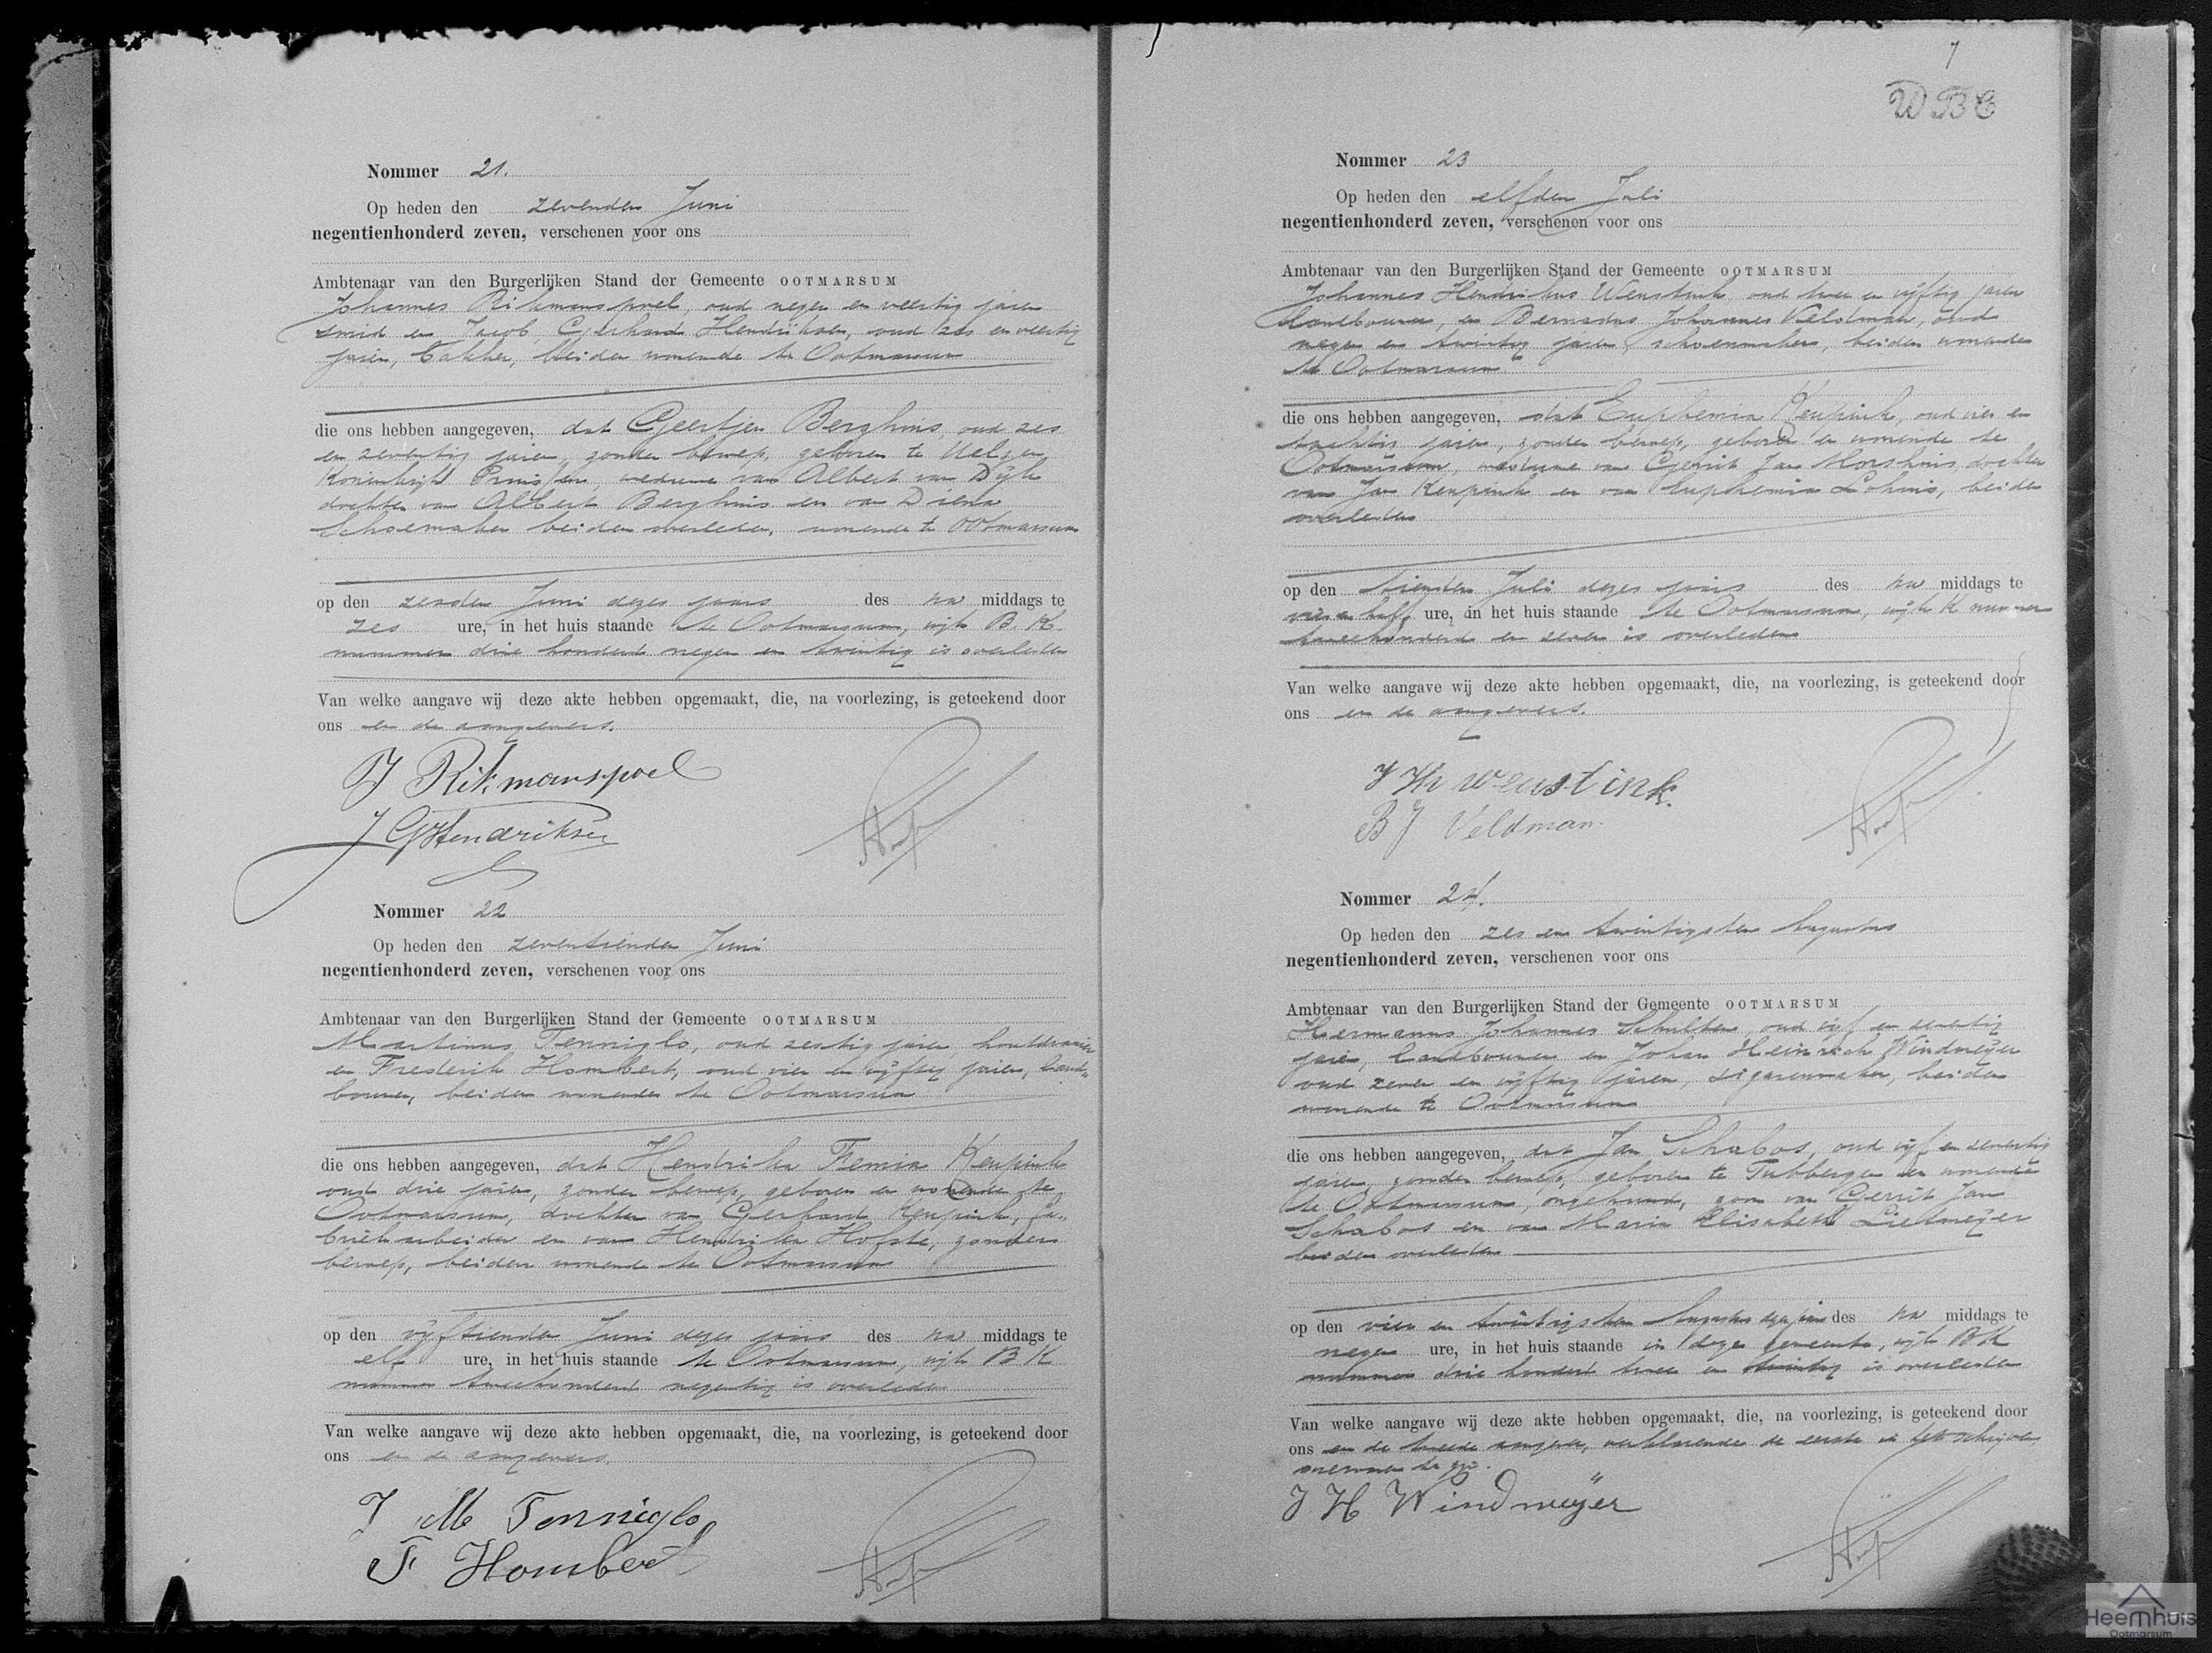 Nommer 21.
Op heden den zevenden Juni
negentienhonderd zeven, verschenen voor ons
Ambtenaar van den Burgerlijken Stand der Gemeente OOTMARSUM
Johannes Rikmanspoel, oud negen en veertig jaren
smid en Jacob Gerhard Hendriksen, oud zes en veertig
jaren, bakker, beiden wonende te Ootmarsum
die ons hebben aangegeven, dat Geertjen Berghuis, oud zes
en zeventig jaren, zonder beroep, geboren te Uelsen,
Koninkrijk Pruissen, weduwe van Albert van Dijk
dochter van Albert Berghuis en van Diena
Schoemaker beiden overleden, wonende te Ootmarsum
op den zesden Juni dezes jaars des na middags te
zes ure, in het huis staande te Ootmarsum, wijk B. K.
nummer drie honderd negen en twintig is overleden
Van welke aangave wij deze akte hebben opgemaakt, die, na voorlezing, is geteekend door
ons en de aangevers.
J Rikmanspoel
J G Hendriksen
Nommer 22
Op heden den zeventienden Juni
negentienhonderd zeven, verschenen voor ons
Ambtenaar van den Burgerlijken Stand der Gemeente OOTMARSUM
Martinus Tenniglo, oud zestig jaren, houtdraaier
en Frederik Hombert, oud vier en vijftig jaren, land-
bouwer, beiden wonende te Ootmarsum
die ons hebben aangegeven, dat Hendrika Femia Keupink
oud drie jaren, zonder beroep, geboren en wonende te
Ootmarsum, dochter van Gerhard Keupink, fa-
briekarbeider en van Hendrika Hofste, zonder
beroep, beiden wonende te Ootmarsum
op den vijftienden Juni dezes jaars des na middags te
elf ure, in het huis staande te Ootmarsum, wijk B K
nummer tweehonderd negentig is overleden
Van welke aangave wij deze akte hebben opgemaakt, die, na voorlezing, is geteekend door
ons en de aangevers.
J M Tenniglo
F Hombert
7
WBC
Nommer 23
Op heden den elfden Juli
negentienhonderd zeven, verschenen voor ons
Ambtenaar van den Burgerlijken Stand der Gemeente OOTMARSUM
Johannes Hendrikus Wenstink oud twee en vijftig jaren
landbouwer, en Bernardus Johannes Veldman, oud
negen en twintig jaren, schoenmaker, beiden wonende
te Ootmarsum
die ons hebben aangegeven, dat Euphemia Keupink, oud vier en
tachtig jaren, zonder beroep, geboren en wonende te
Ootmarsum, weduwe van Gerrit Jan Morshuis, dochter
van Jan Keupink en van Euphemia Lohuis, beiden
overleden
op den tienden Juli dezes jaars des na middags te
vier en half ure, in het huis staande te Ootmarsum, wijk K nummer
tweehonderd en zeven is overleden
Van welke aangave wij deze akte hebben opgemaakt, die, na voorlezing, is geteekend door
ons en de aangevers.
J H wenstink.
B J Veldman.
Nommer 24.
Op heden den zes en twintigsten Augustus
negentienhonderd zeven, verschenen voor ons
Ambtenaar van den Burgerlijken Stand der Gemeente OOTMARSUM
Hermannus Johannes Schulten, oud vijf en zeventig
jaren, landbouwer en Johan Heinrich Windmeijer
oud zeven en vijftig jaren, sigarenmaker, beiden
wonende te Ootmarsum
die ons hebben aangegeven, dat Jan Schabos, oud vijf en zeventig
jaren, zonder beroep, geboren te Tubbergen en wonende
te Ootmarsum, ongehuwd, zoon van Gerrit Jan
Schabos en van Maria Elisabeth Lietmeijer
beiden overleden
op den vier en twintigsten Augustus dezes jaars des na middags te
negen ure, in het huis staande in deze gemeente, wijk B K
nummer drie honderd twee en twintig is overleden
Van welke aangave wij deze akte hebben opgemaakt, die, na voorlezing, is geteekend door
ons en de tweede aangever, verklarende de eerste in het schrijven
onervaren te zijn.
J. H Windmeijer
Heemhuis
Ootmarsum